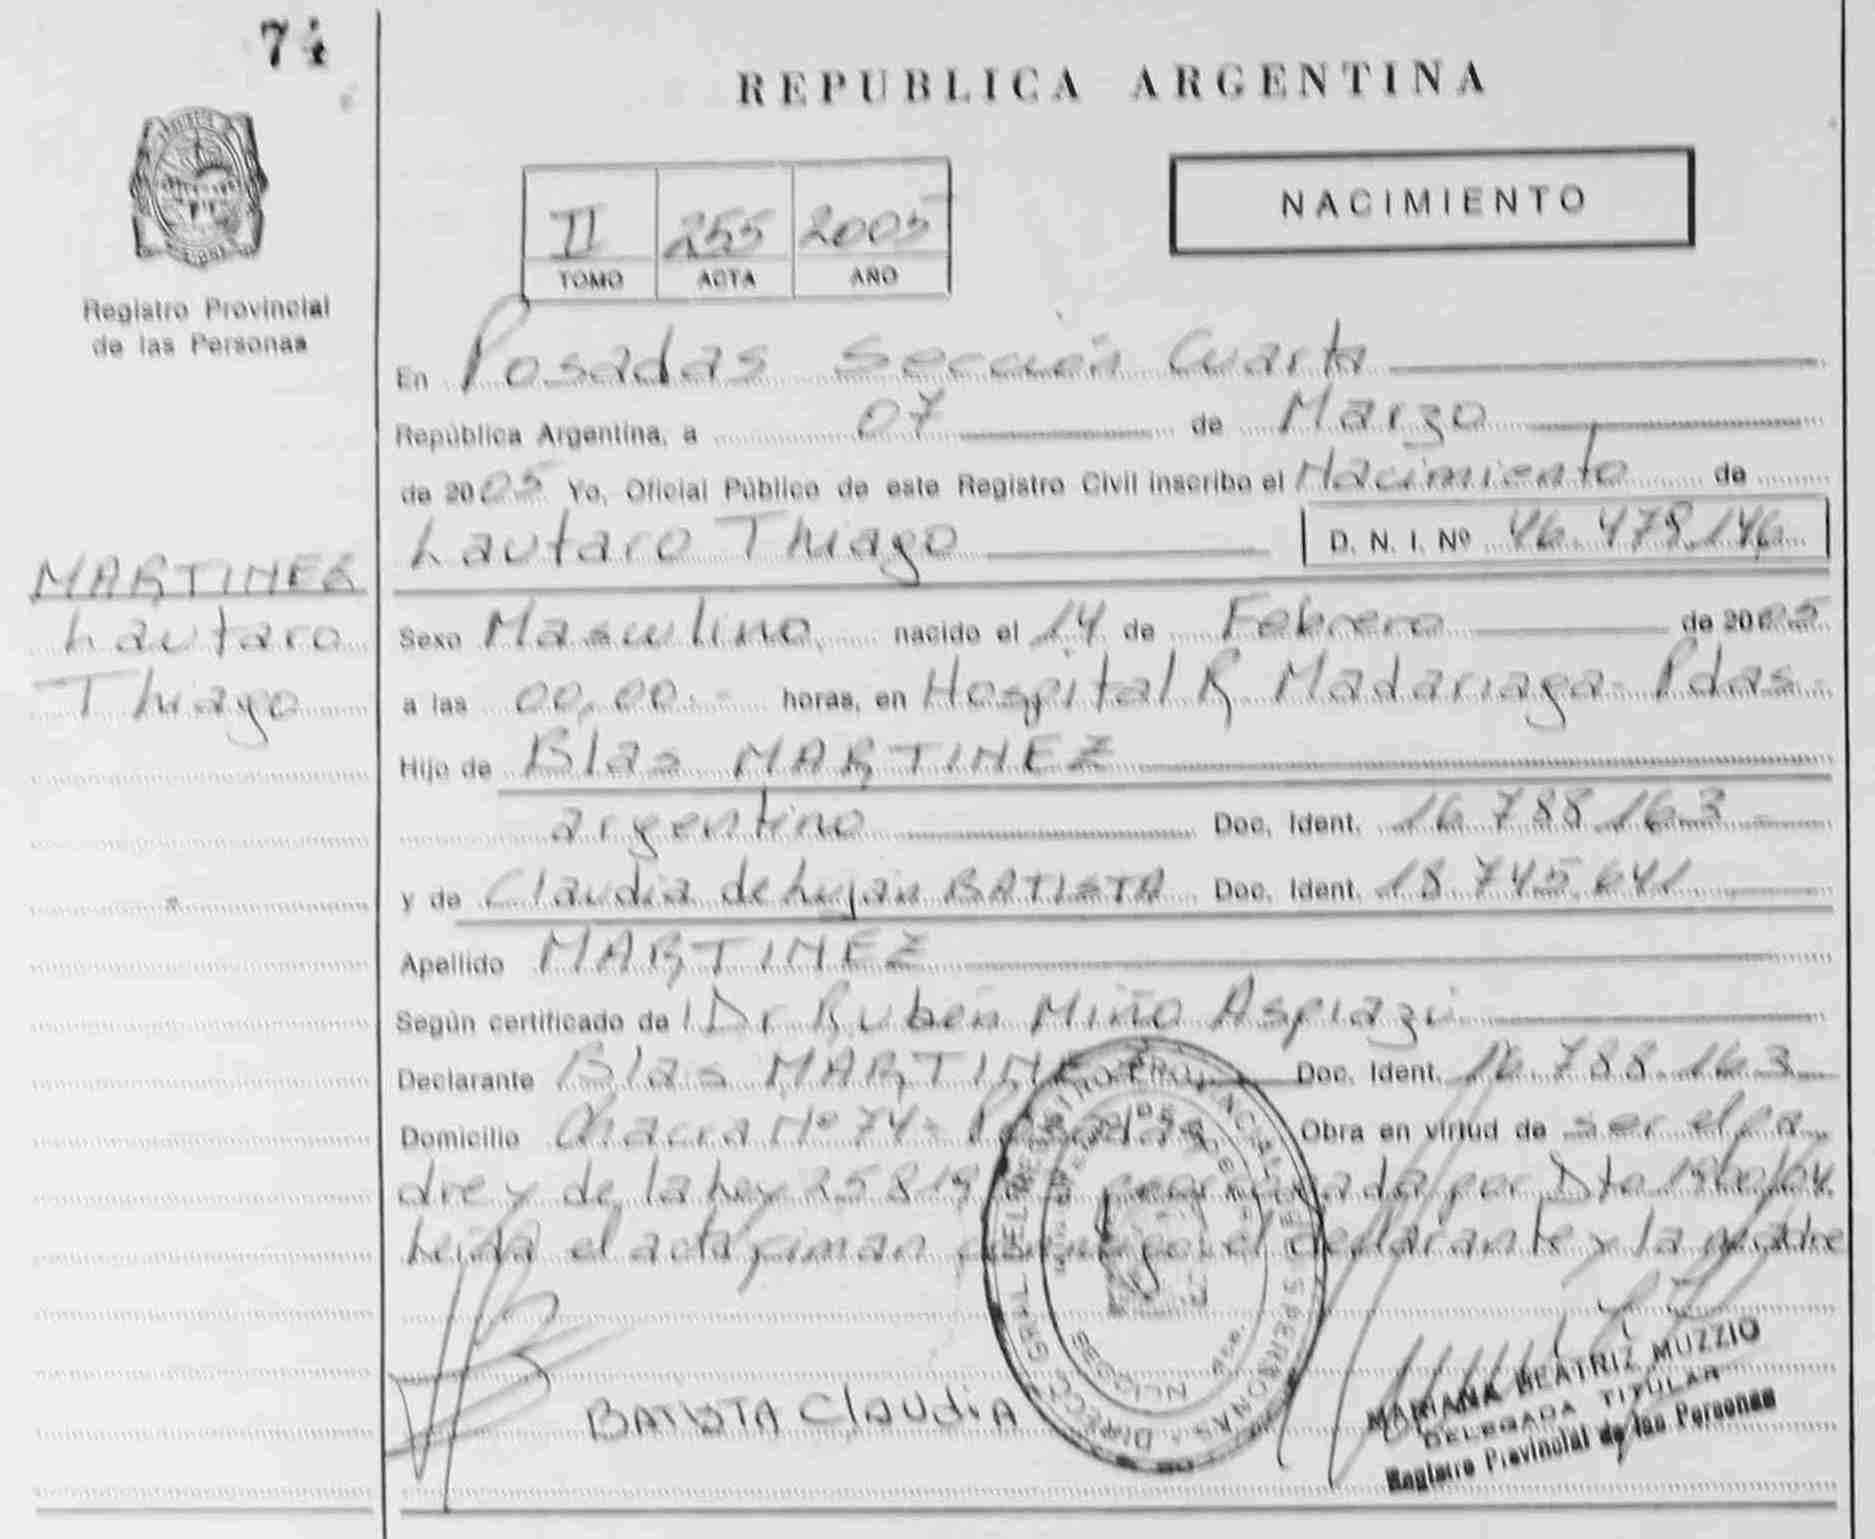 74
REPUBLICA ARGENTINA
NACIMIENTO
II 255 2005
TOMO ACTA AÑO
Registro Provincial
de las Personas
En Posadas Sección Cuarta
República Argentina, a 07 de Marzo
de 2005 Yo, Oficial Público de este Registro Civil inscribo el Nacimiento de
Lautaro Thiago D. N. I. Nº 46.479.146
MARTINEZ
Lautaro
Thiago
Sexo Masculino nacido el 14 de Febrero de 2005
a las 00,00.- horas, en Hospital R Madariaga- Pdas-
Hijo de Blas MARTINEZ
argentino Doc. Ident. 16.788.163-
y de Claudia de Lujan BATISTA Doc. Ident. 18.745.641
Apellido MARTINEZ
Según certificado de Dr Rubén Miño Aspiazú
Declarante Blas Doc. Ident. 16.788.163
Domicilio Chacra Nº 74- Posadas Obra en virtud de ser el pa
dre y de la Ley 25819 por Dto 1900/04.
Leída el acta firman el declarante y la madre
BATISTA Claudia
MARIANA BEATRIZ MUZZIO
DELEGADA TITULAR
Registro Provincial de las Personas